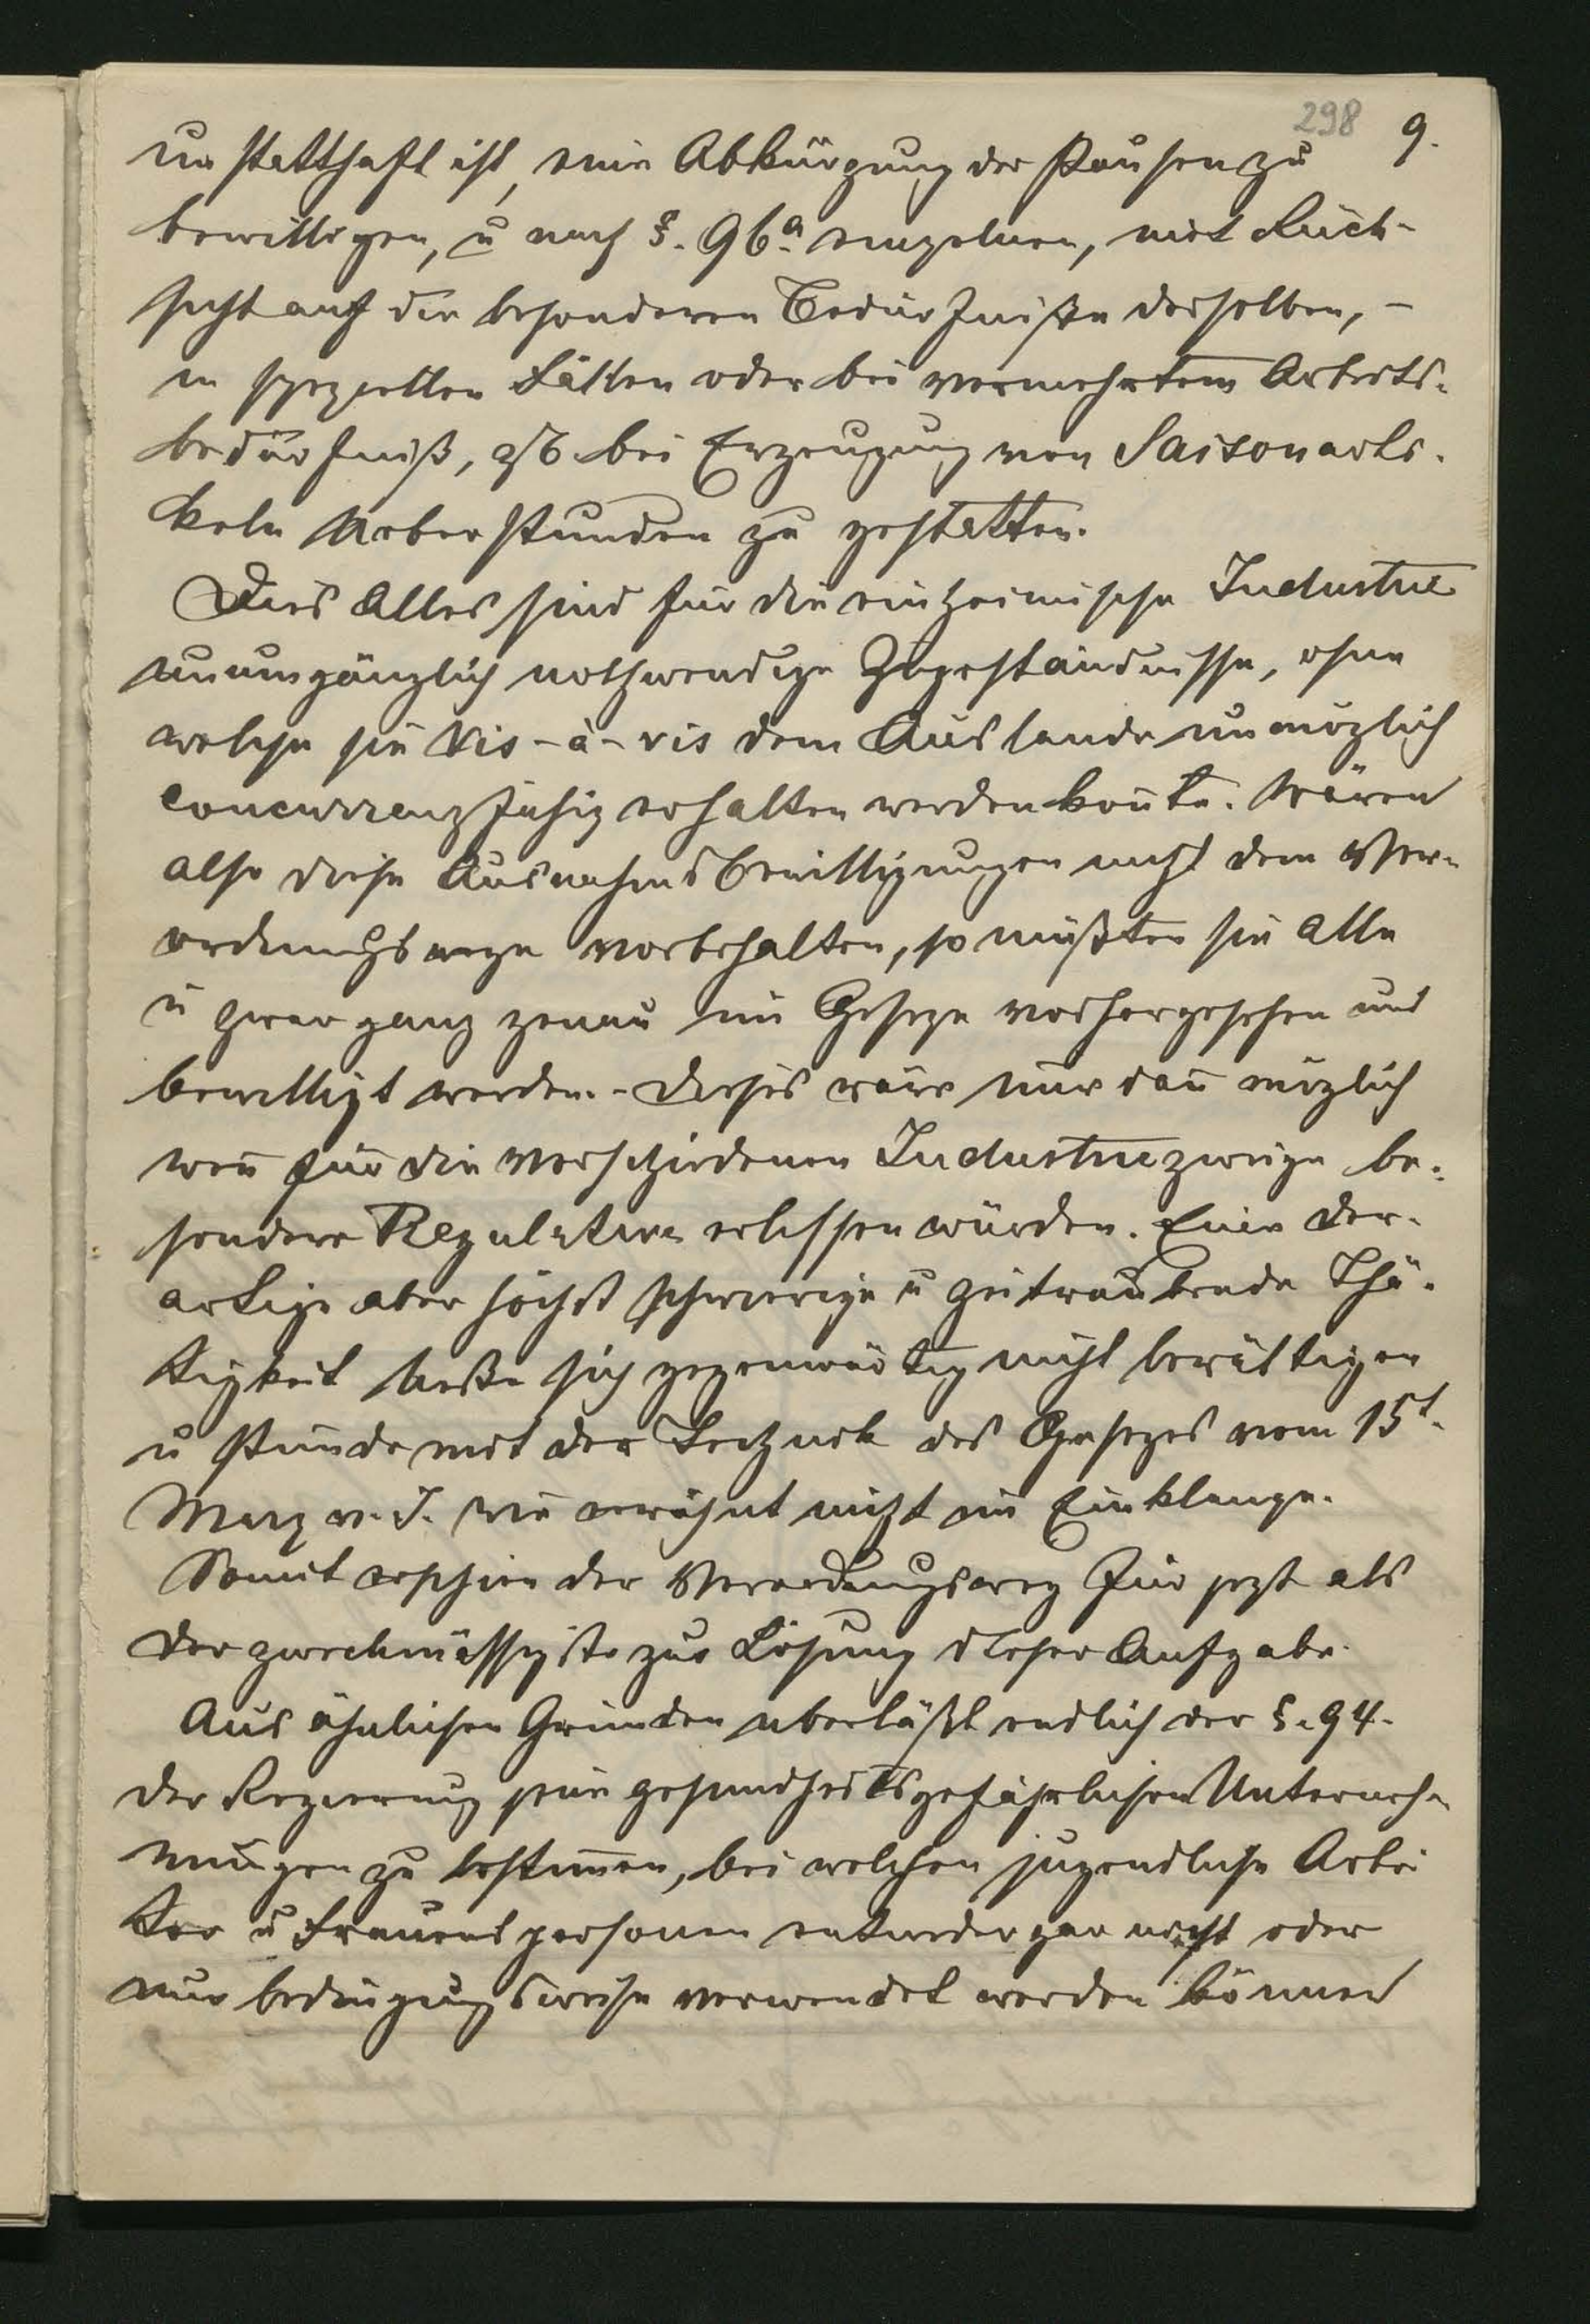 298 9.
unstatthaft ist, eine Abkürzung der Pausen zu
bewilligen, u nach §. 96a. einzelnen, mit Rück-
sicht auf die besonderen Bedürfniße derselben, –
in speziellen Fällen oder bei vermehrtem Arbeits-
bedürfniß, zB bei Erzeugung von Saisonarti-
keln Ueberstunden zu gestatten.
Dies Alles sind für die einheimische Industrie
unumgänglich nothwendige Zugeständnisse, ohne
welche sie vis-à-vis dem Auslande unmöglich
concurrenzfähig erhalten werden könnte. Wären
also diese Ausnahmsbewilligungen nicht dem Ver-
ordnungswege vorbehalten, so müßten sie alle
u zwar ganz genau im Geseze vorhergesehen und
bewilligt werden. – Dieses wäre nur dan̄ möglich
wen̄ für die verschiedenen Industriezweige be-
sondere Regulative erlassen würden. Eine der-
artige aber höchst schwierige u zeitraubende Thä-
tigkeit ließe sich gegenwärtig nicht bewältigen
u stünde mit der Technik des Gesezes vom 15t.
März v. J. wie erwähnt nicht im Einklange.
Somit erschien der Verordnungsweg für jezt als
der zweckmässigste zur Lösung dieser Aufgabe.
Aus ähnlichen Gründen überläßt endlich der §. 94.
der Regierung jene gesundheitsgefährlichen Unterneh-
mungen zu bestim̄en, bei welchen jugendliche Arbei
ter u Frauenspersonen entweder gar nicht oder
nur bedingungsweise verwendet werden können